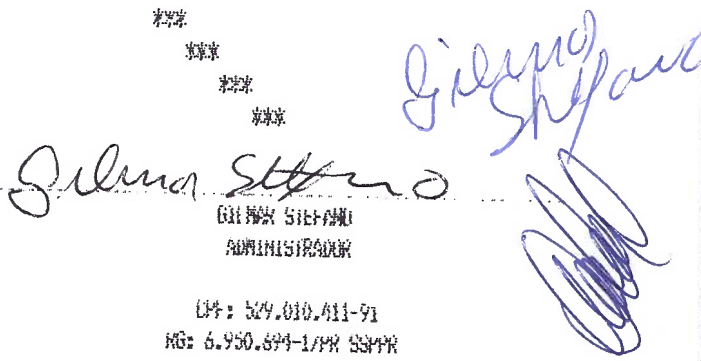 ***
***
***
***
Gilmar Stefano
Gilmar Stefano
GILMAR STEFANO
ADMINISTRADOR
CPF: 529.010.411-91
RG: 6.950.694-1/PR SSPPR